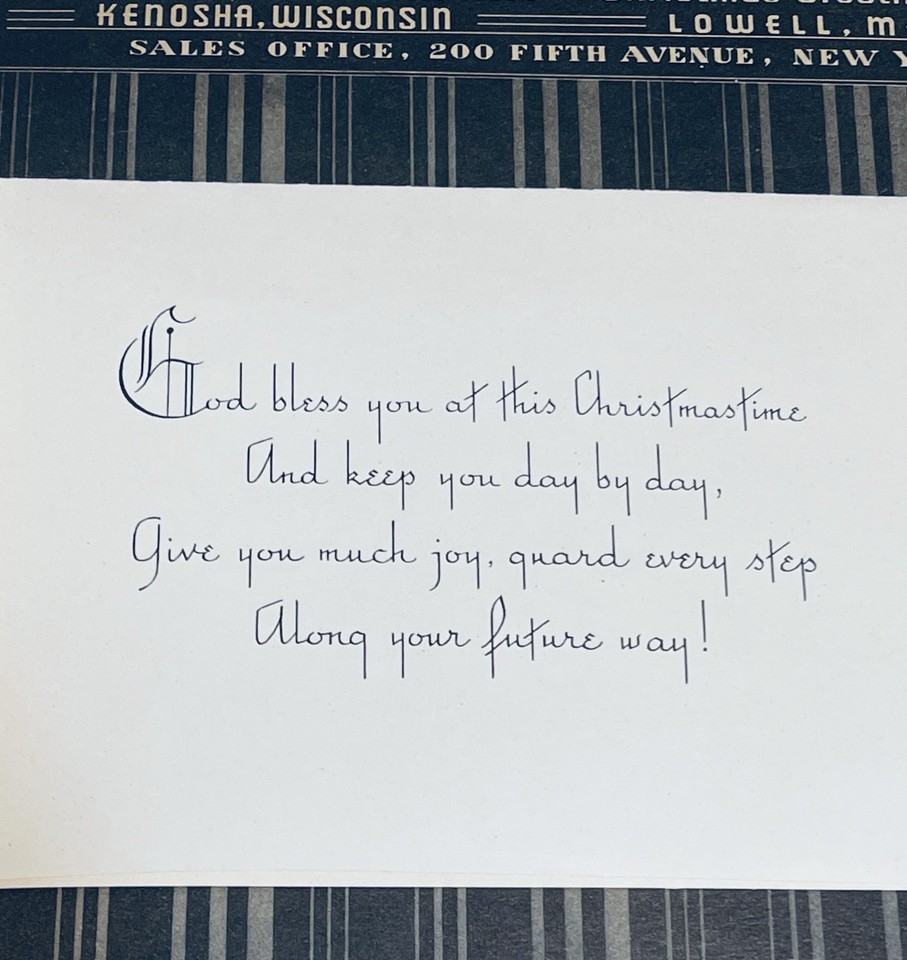 KENOSHA, WISCONSIN LOWELL, M
SALES OFFICE, 200 FIFTH AVENUE, NEW Y
God bless you at this Christmastime
And keep you day by day,
Give you much joy, guard every step
Along your future way!